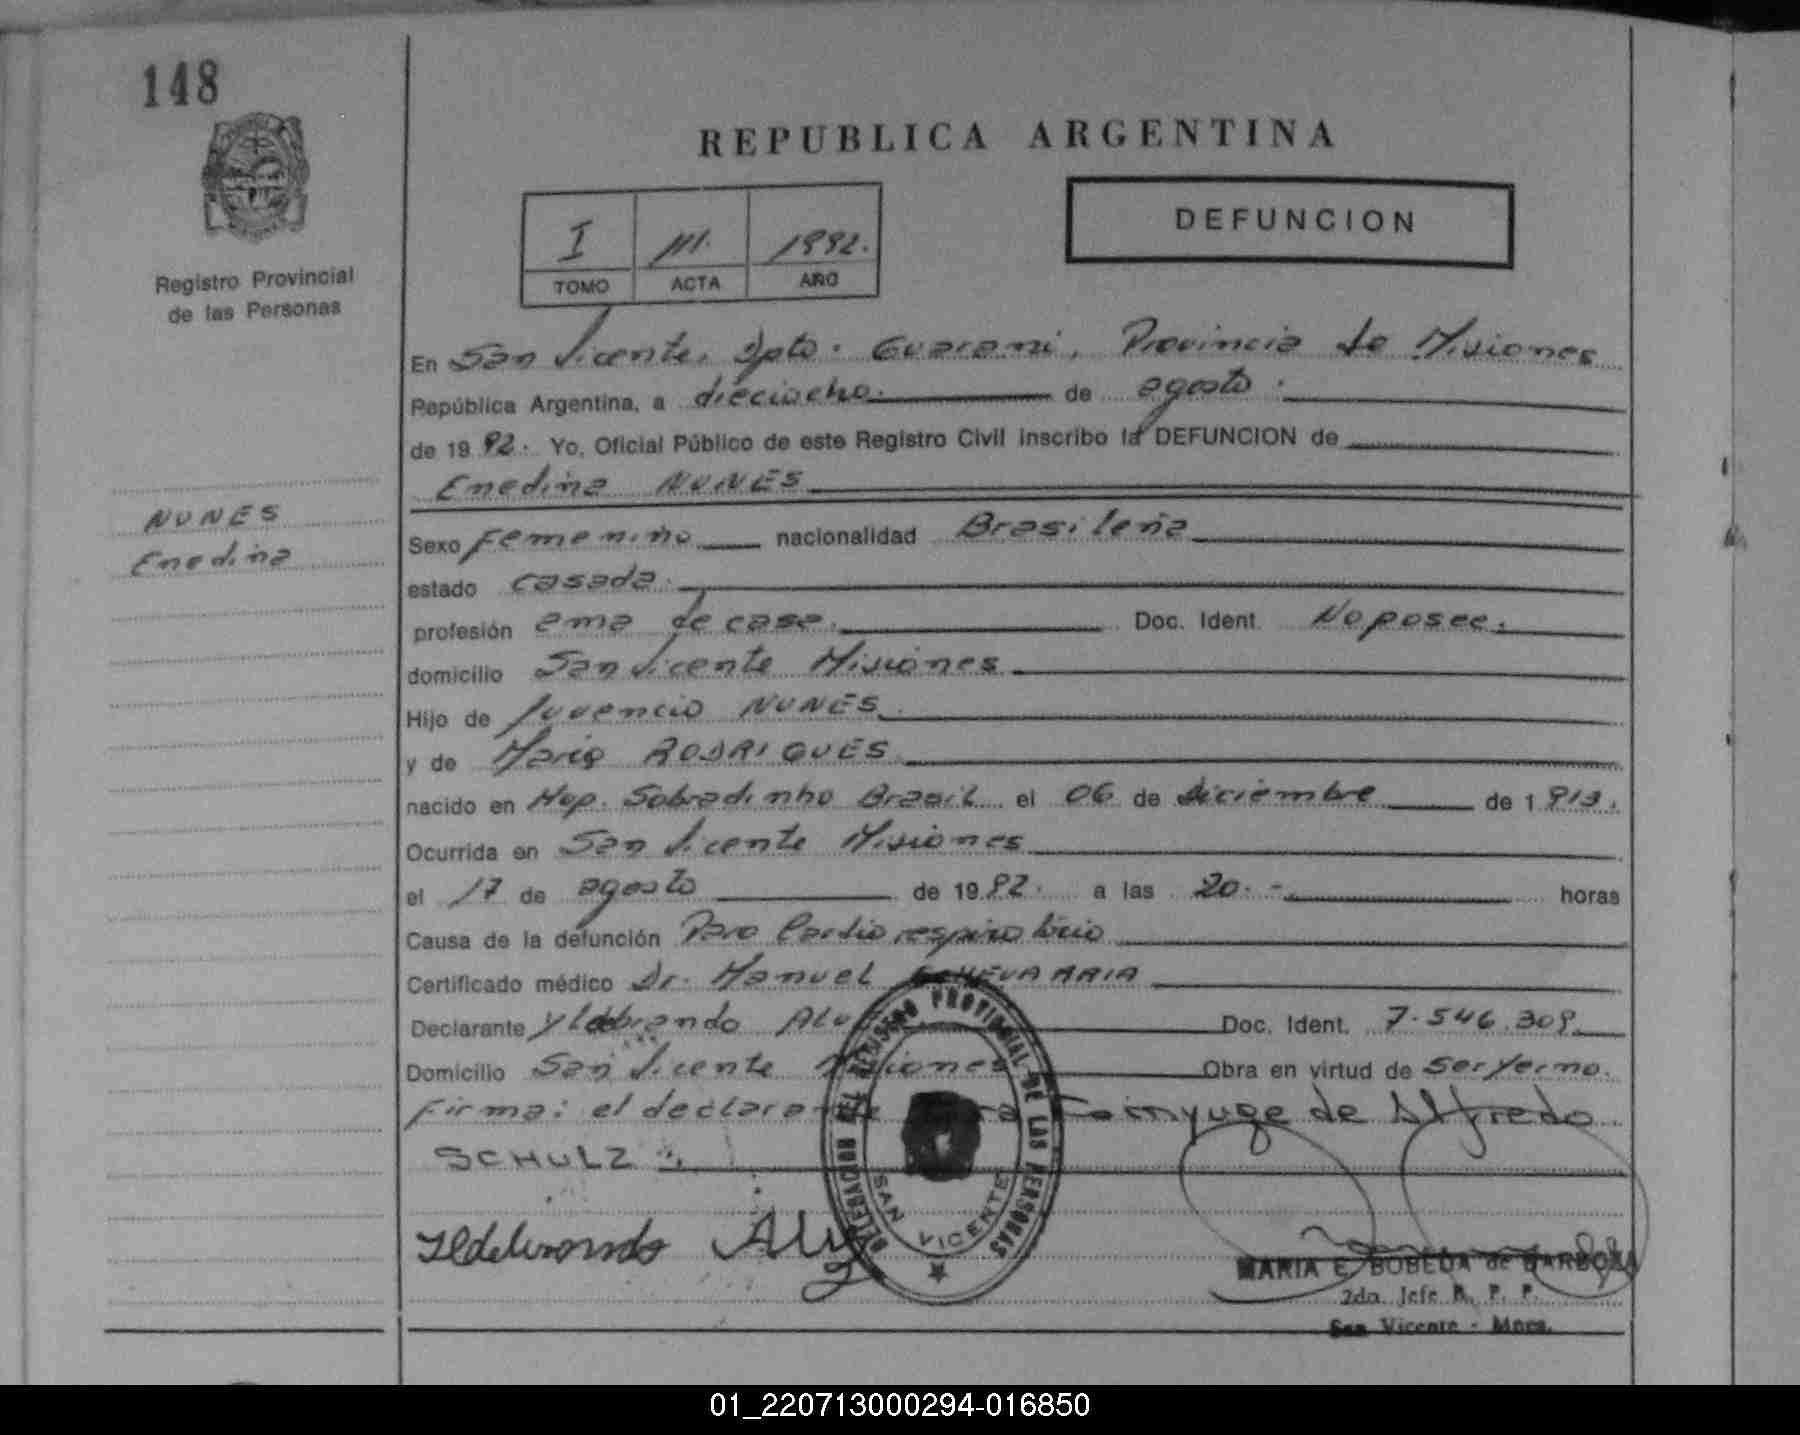 148
REPUBLICA ARGENTINA
DEFUNCION
I 111. 1992.
TOMO ACTA AÑO
Registro Provincial
de las Personas
En San Vicente, Dpto. Guarani, Provincia de Misiones
República Argentina, a dieciocho. de agosto.
de 1992. Yo, Oficial Público de este Registro Civil inscribo la DEFUNCION de
Enedina NUNES
NUNES
Enedina
Sexo Femenino nacionalidad Brasileña
estado casada.
profesión ama de casa. Doc. Ident. No posee.
domicilio San Vicente Misiones
Hijo de Juvencio NUNES
y de Maria RODRIGUES
nacido en Mop. Sobradinho Brasil el 06 de diciembre de 1913.
Ocurrida en San Vicente Misiones
el 17 de agosto de 1992. a las 20.- horas
Causa de la defunción Paro Cardio respiratorio
Certificado médico Dr. Manuel ECHEVARRIA
Declarante Doc. Ident. 7.546.309
Domicilio San Vicente Misiones Obra en virtud de ser yerno.
Firma: el declarante Conyuge de Alfredo
SCHULZ
DELEGACION DEL REGISTRO PROVINCIAL DE LAS PERSONAS
SAN VICENTE
MARIA E. BOBEDA de BARBOZA
2da. Jefe R. P. P.
San Vicente - Mnes.
01_220713000294-016850